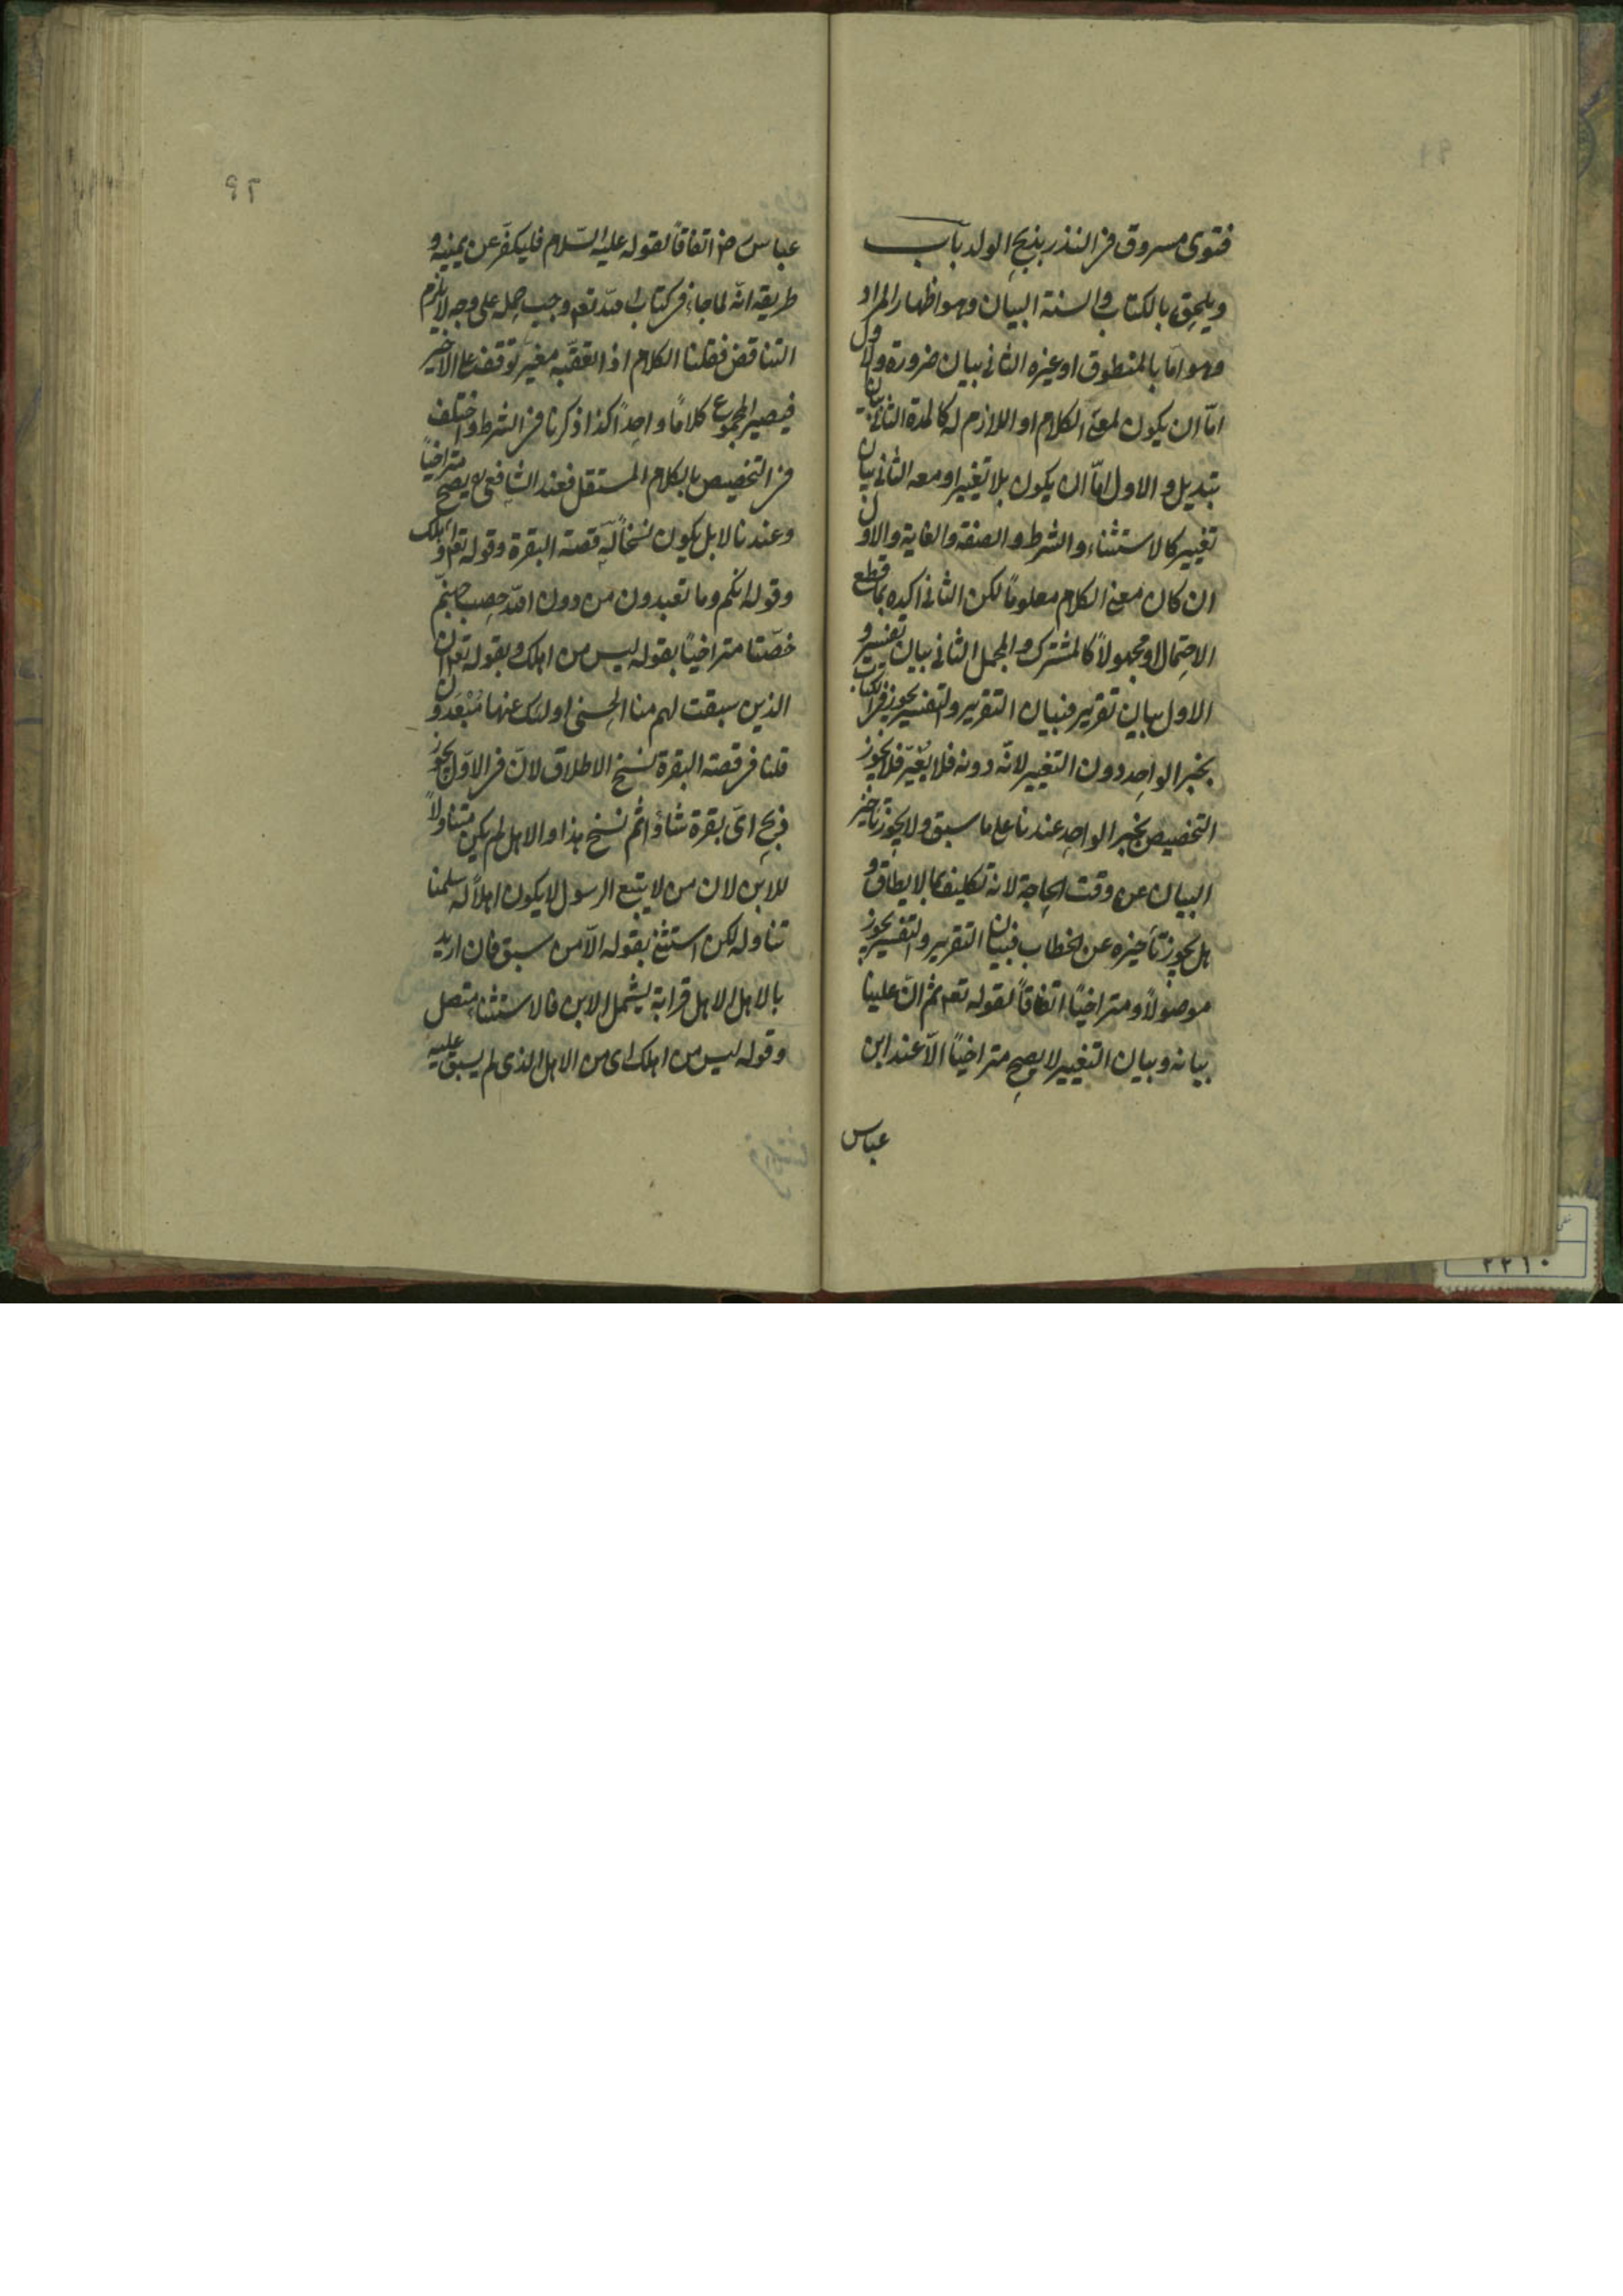 فتوى مسروق فى النذر بذبح الولد باب
ويلحق بالكتاب والسنة البيان وهو اظهار المراد
وهو اما بالمنطوق او غيره الثانى بيان ضرورة والاول
امّا ان يكون لمعنى الكلام او اللازم له كالمدة الثانى بيان
تبديل والاول امّا ان يكون بلا تغيير او معه الثانى بيان
تغيير كالاستثناء والشرط والصفة والغاية والاول
ان كان معنى الكلام معلومًا لكن الثانى اكده بما قطع
الاحتمال او مجهولاً كالمشترك والمجمل الثانى بيان تفسير و
الاول بيان تقرير فبيان التقرير والتفسير يجوز فى الكتاب
بخبر الواحد دون التغيير لانّه دونه فلا يُغيّر فلا يجوز
التخصيص بخبر الواحد عندنا على ما سبق ولا يجوز تأخير
البيان عن وقت الحاجة لانه تكليف بما لا يطاق و
هل يجوز تأخيره عن الخطاب فبيان التقرير والتفسير يجوز
موصولاً ومتراخيًا اتفاقًا لقوله تعم ثم انّ علينا
بيانه وبيان التغيير لا يصح متراخيًا الّا عند ابن
عباس
٩٢
عباس رض اتفاقًا لقوله عليه السّلام فليكفّر عن يمينه و
طريقه انّه لما جاء فى كتاب الله تعم وجب حمله على وجه لا يلزم
التناقض فقلنا الكلام اذا تعقبه مغير توقف على الاخير
فيصير المجموع كلامًا واحدًا كذا ذكرنا فى الشرط واختلف
فى التخصيص بالكلام المستقل فعند الشافعى ره يصح متراخيًا
وعندنا لا بل يكون نسخًا له قصة البقرة وقوله تعم واهلك
وقوله انكم وما تعبدون من دون الله حصب جهنّم
خصّتا متراخيًا بقوله ليس من اهلك وبقوله تعم ان
الذين سبقت لهم منا الحسنى اولئك عنها مُبْعَدون
قلنا فى قصة البقرة نسخ الاطلاق لانّ فى الاوّل يجوز
ذبح اىّ بقرة شاؤا ثم نسخ هذا والاهل لم يكن متناولاً
للابن لان من لا يتبع الرسول لا يكون اهلاً له سلمنا
تناوله لكن استثنى بقوله الّا من سبق فان اريد
بالاهل الاهل قرابة يشمل الابن فالاستثناء متصل
وقوله ليس من اهلك اى من الاهل الذى لم يسبق عليه